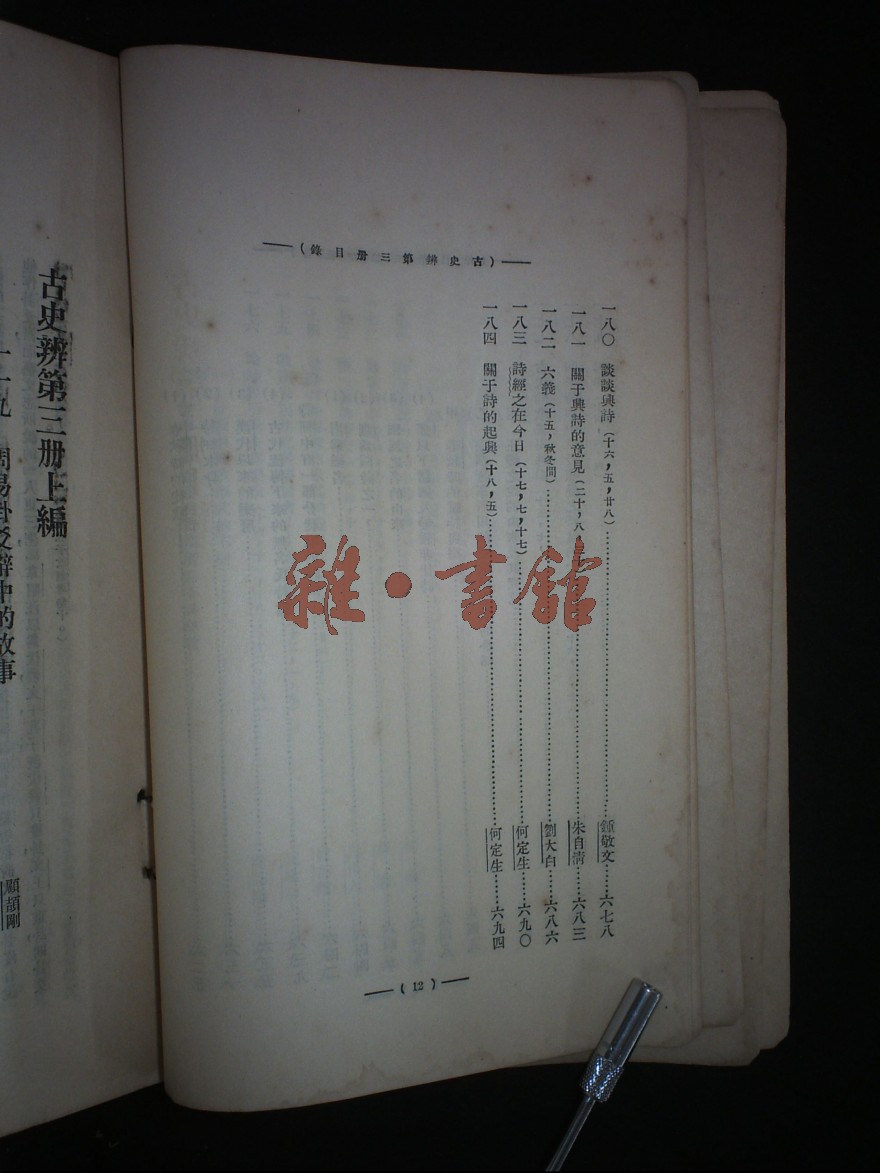 （古史辨第三册目錄）
一八〇　談談興詩（十六，五，廿八）……鍾敬文……六七八
一八一　關于興詩的意見（二十，八，……朱自清……六八三
一八二　六義（十五，秋冬間）……劉大白……六八六
一八三　詩經之在今日（十七，七，十七）……何定生……六九〇
一八四　關于詩的起興（十八，五）……何定生……六九四
（12）
古史辨第三册上編
周易卦爻辭中的故事
顧頡剛
雜·書館